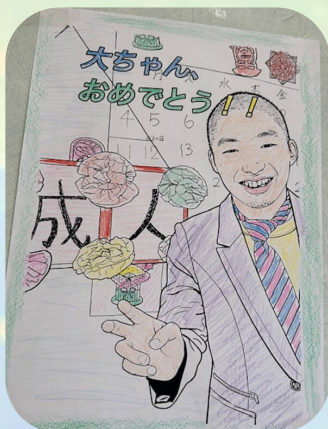 大ちゃん、
おめでとう!!
水 木 金
4 5 6
11 12 13
成人